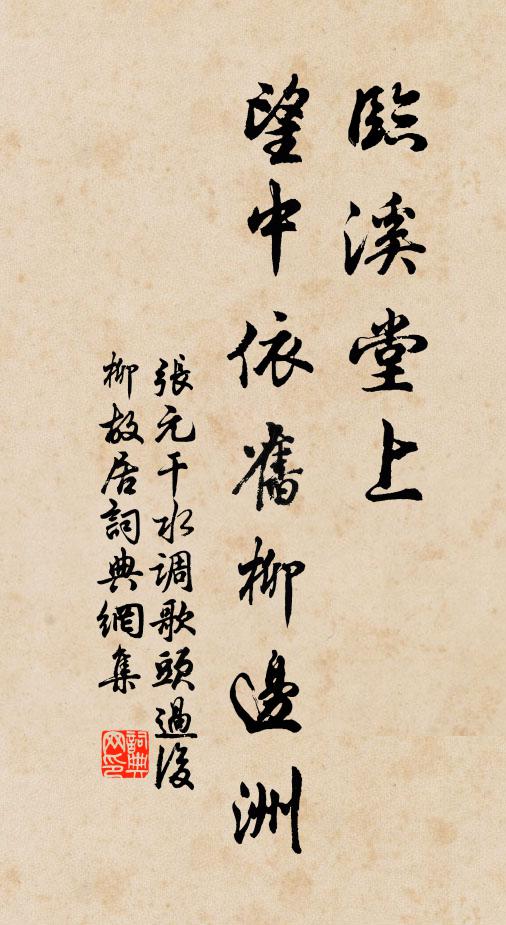 臨溪堂上
望中依舊柳邊洲
張元干水調歌頭過後
柳故居詞典網集
詞典
网印